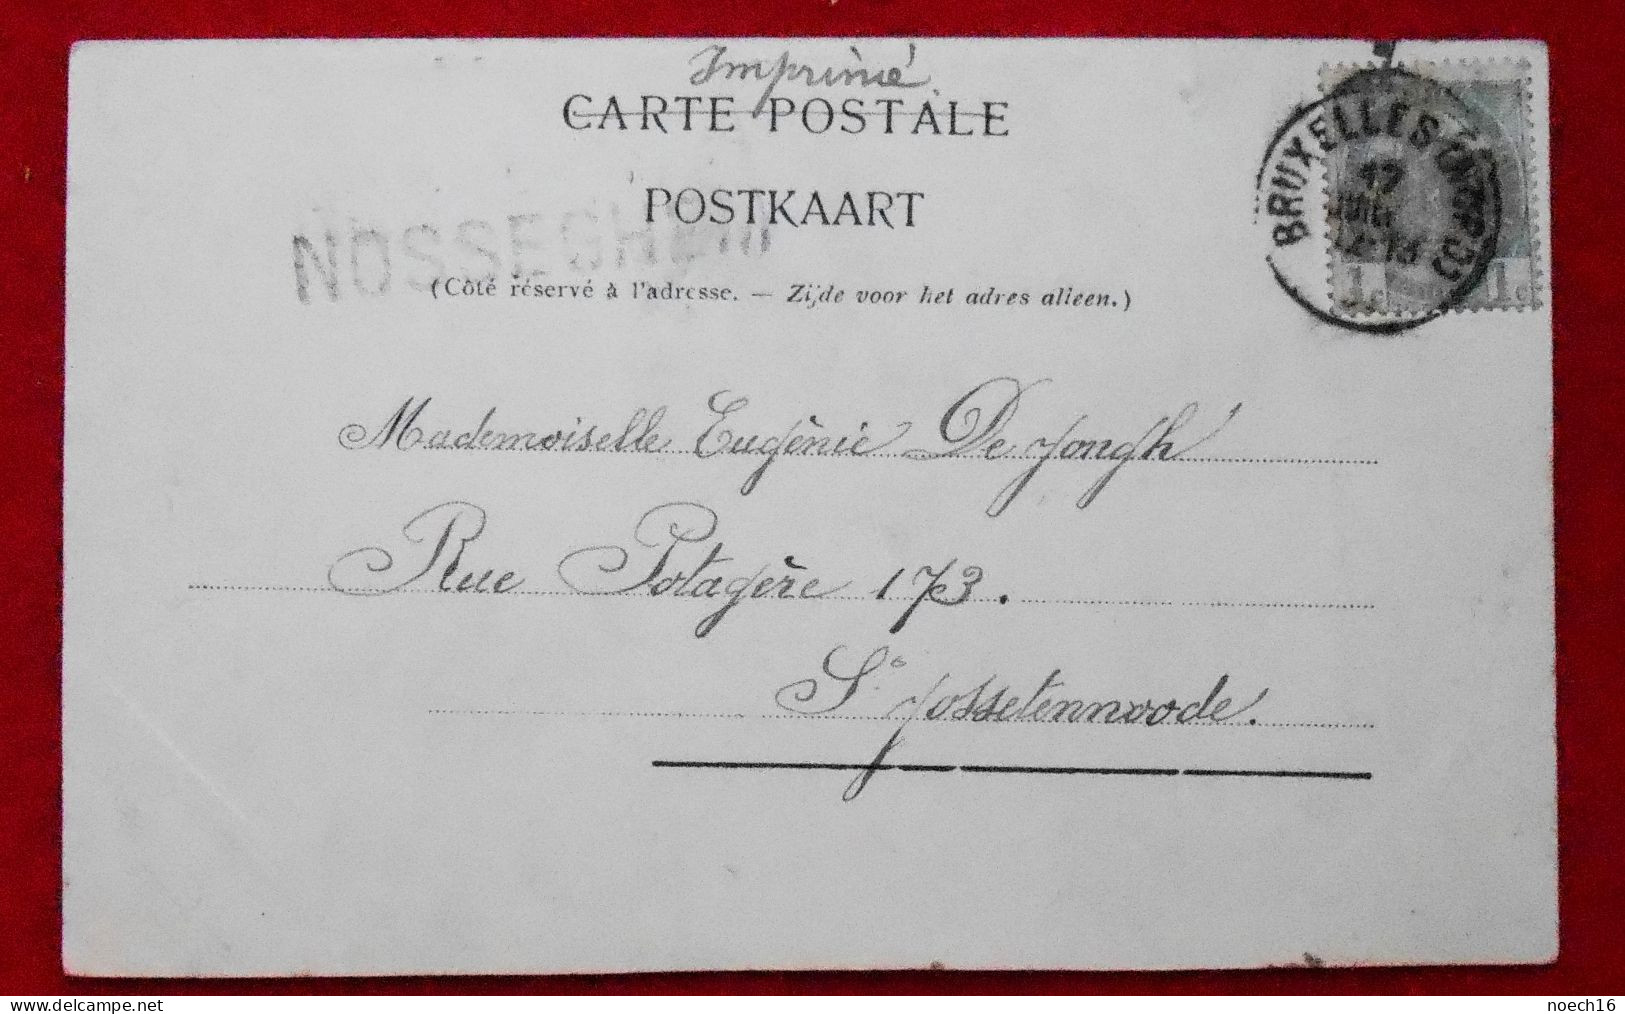 Imprimé
CARTE POSTALE
POSTKAART
NOSSEGHEM
(Côté réservé à l'adresse. — Zijde voor het adres alleen.)
BRUXELLES
12
JUIL
1c 1c
Mademoiselle Eugènie De Jongh
Rue Potagère 173.
St Jossetennoode.
delcampe.net
noech16